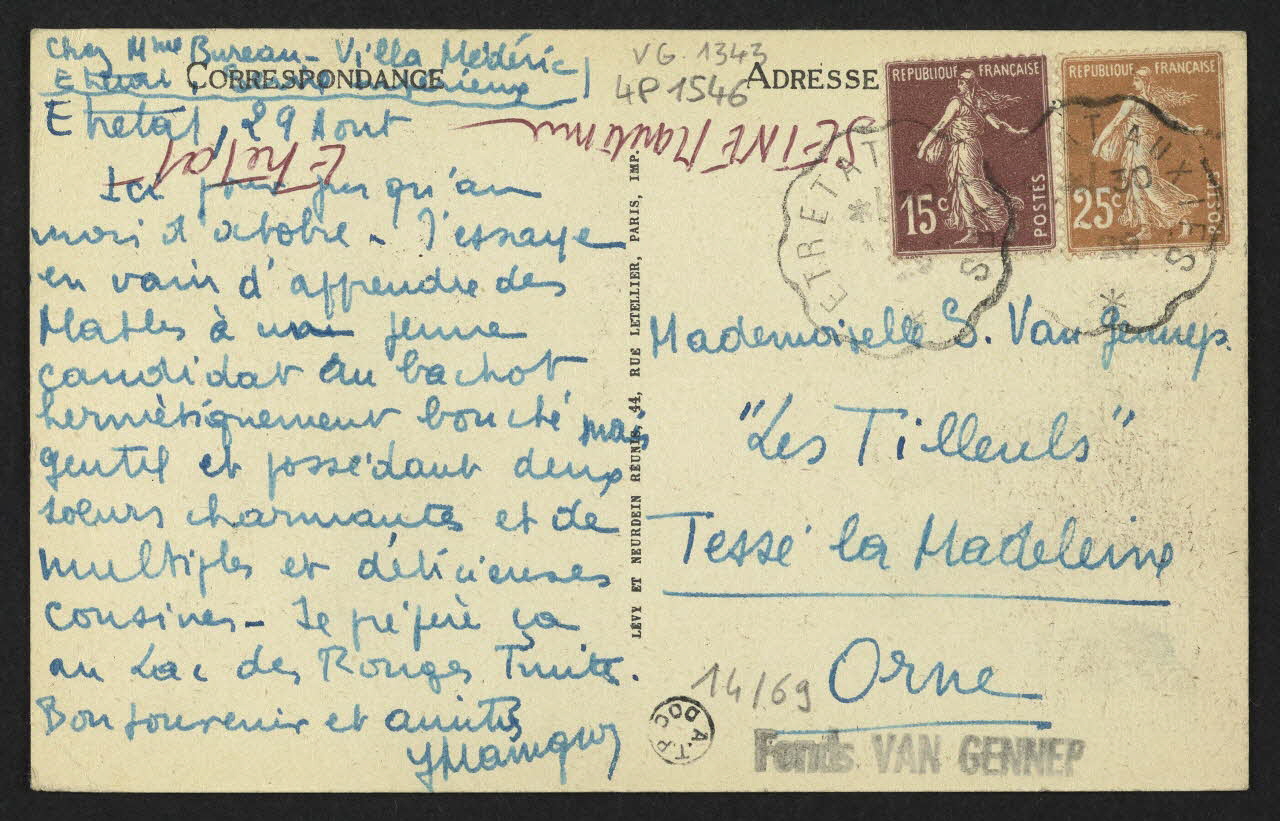 Chez Mme Bureau - Villa Médéric
Etretat
CORRESPONDANCE
Etretat, 29 Aout
Ici pour jusqu'au
mois d'octobre - J'essaye
en vain d'apprendre des
Maths à un jeune
candidat au bachot
hermétiquement bouché, mais
gentil et possédant deux
soeurs charmantes et de
multiples et délicieuses
cousines - Je préfère ça
au Lac des Rouges Truites.
Bon souvenir et amitiés
Etretat
SEINE Maritime
LÉVY ET NEURDEIN RÉUNIS, 44, RUE LETELLIER, PARIS, IMP.
VG. 1343
4P 1546
ADRESSE
REPUBLIQUE FRANÇAISE
15c
POSTES
REPUBLIQUE FRANÇAISE
25c
POSTES
ETRETAT
Mademoiselle S. Van Gennep.
"Les Tilleuls"
Tessé la Madeleine
Orne
14/69
A.T.P.
DOC
Fonds VAN GENNEP